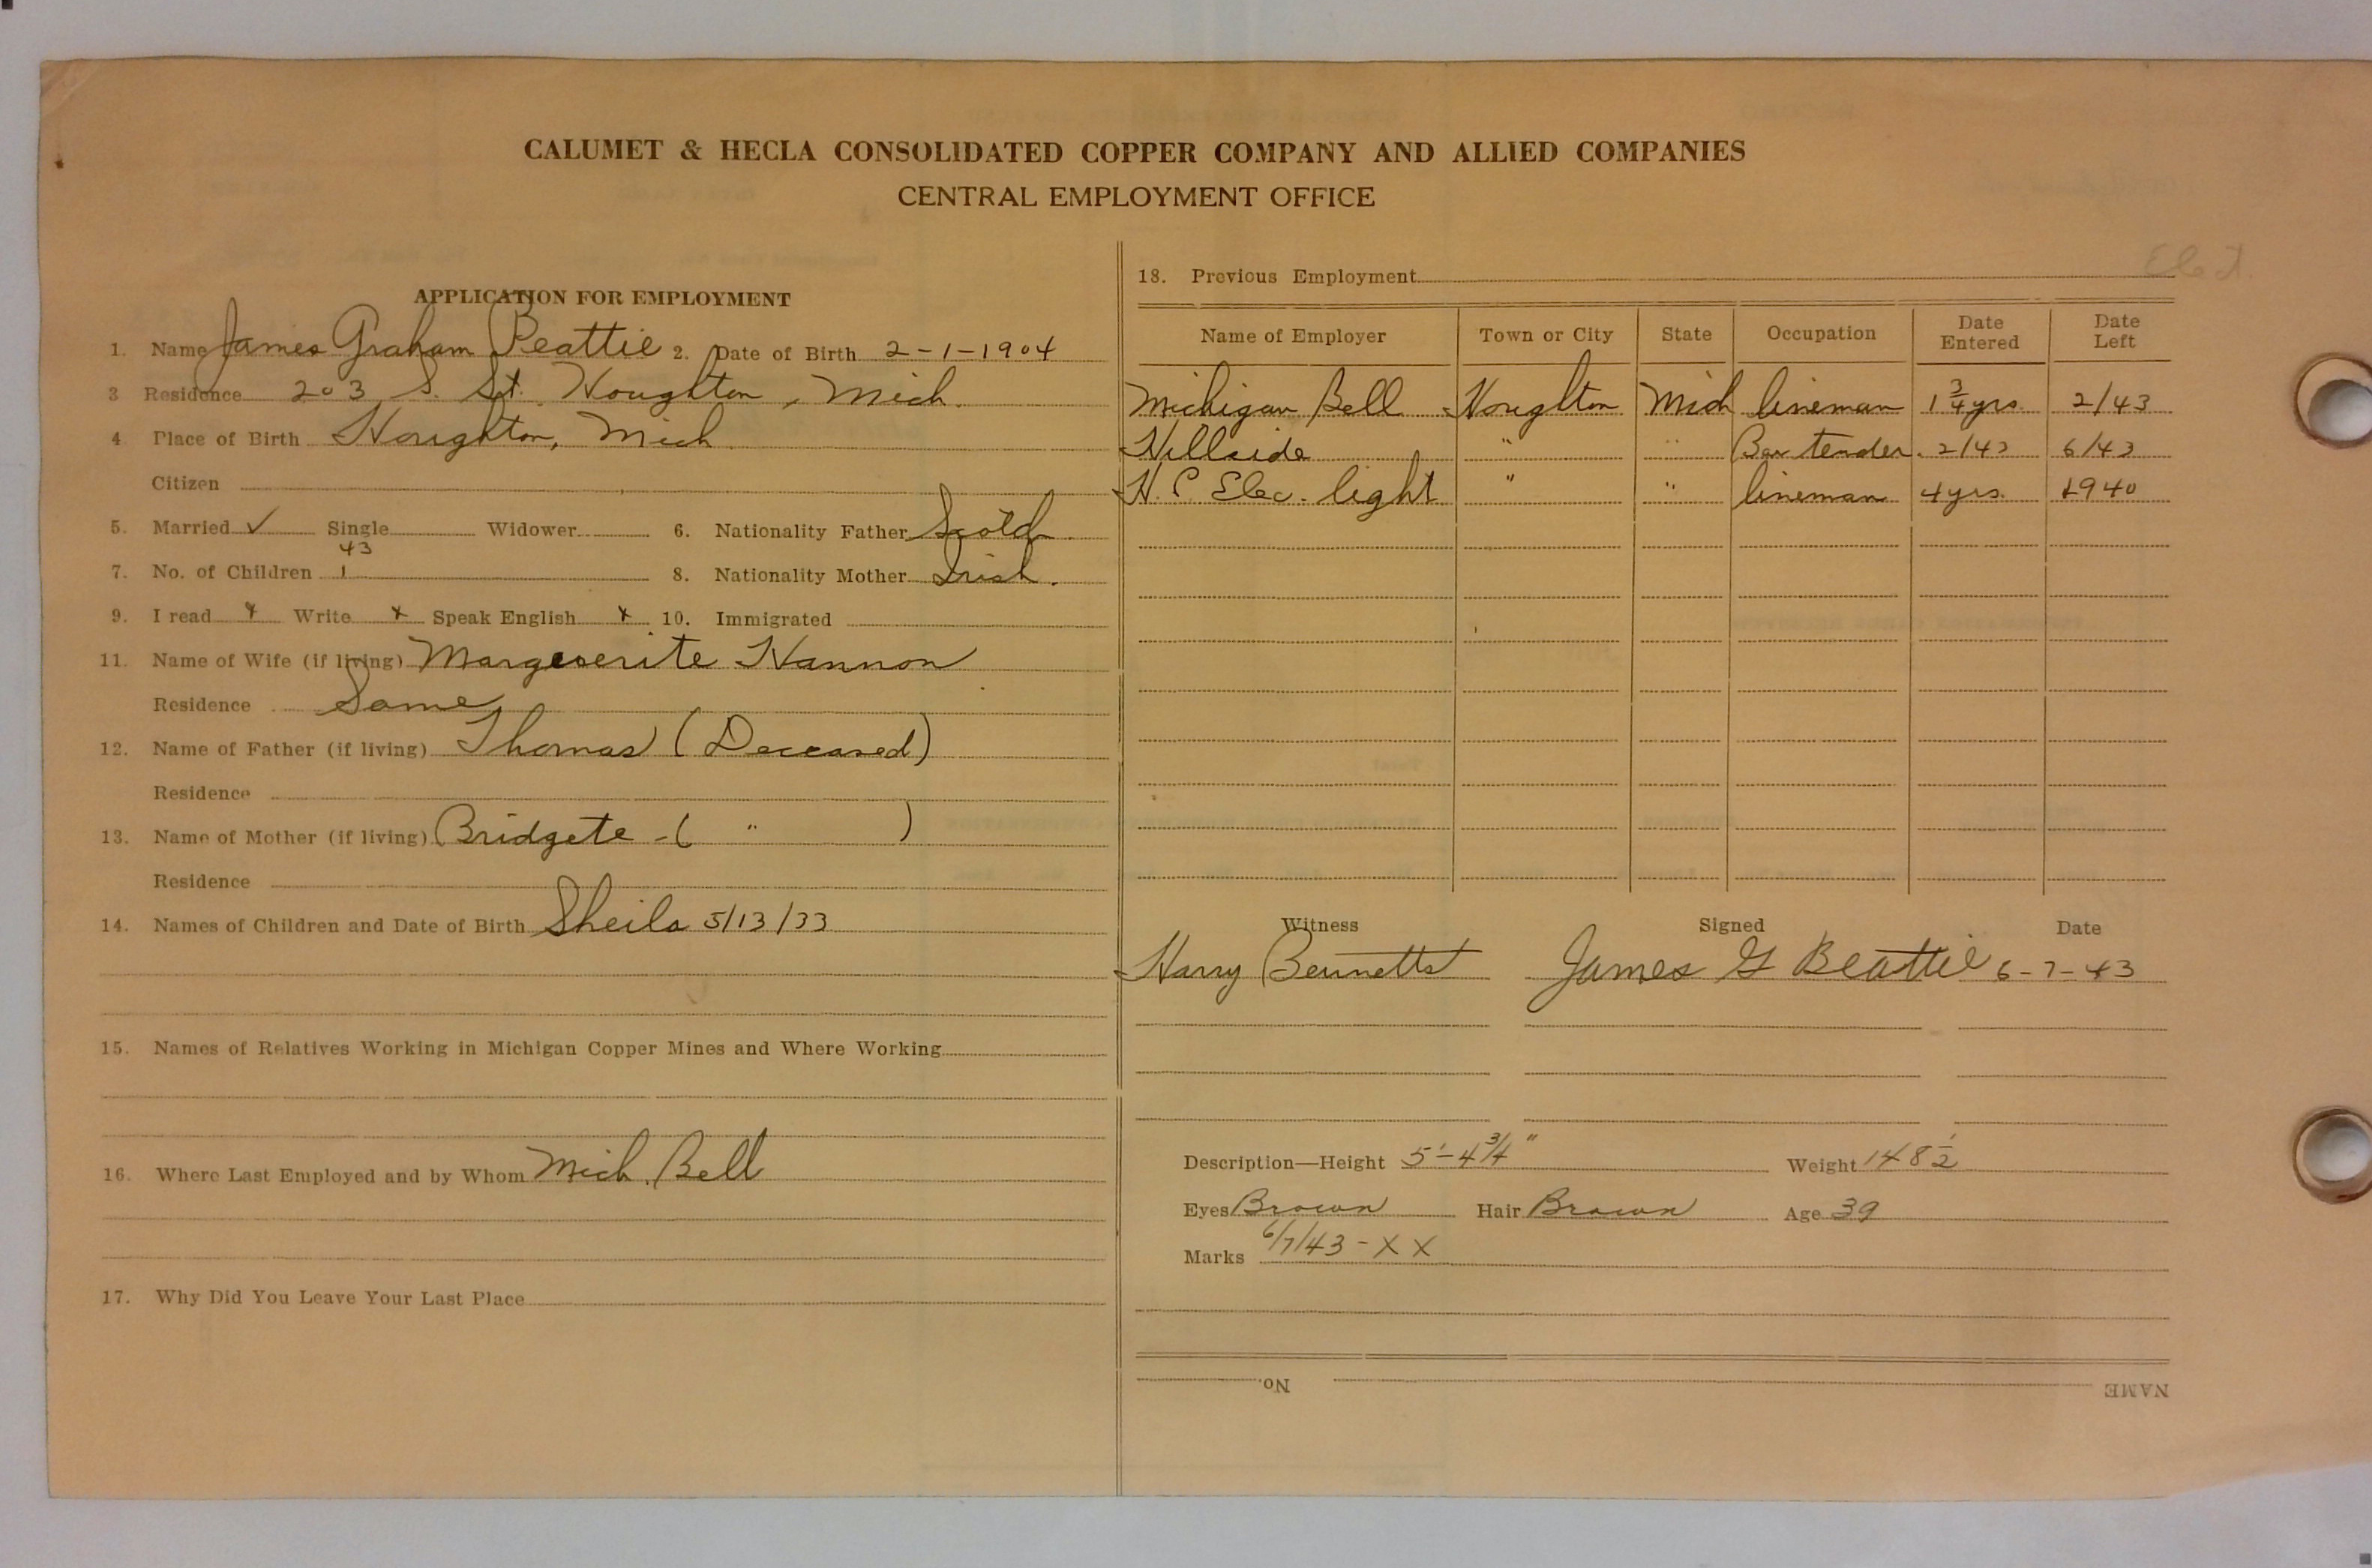 CALUMET & HECLA CONSOLIDATED COPPER COMPANY AND ALLIED COMPANIES
CENTRAL EMPLOYMENT OFFICE
APPLICATION FOR EMPLOYMENT
1. Name James Graham Beattie 2. Date of Birth 2-1-1904
3 Residence 203 S. St. Houghton, Mich.
4 Place of Birth Houghton, Mich
Citizen
5. Married ✓ Single Widower 6. Nationality Father Scotch
43
7. No. of Children 1 8. Nationality Mother Irish.
9. I read x Write x Speak English x 10. Immigrated
11. Name of Wife (if living) Margeuerite Hannon
Residence Same
12. Name of Father (if living) Thomas (Deceased)
Residence
13. Name of Mother (if living) Bridgete - ( " )
Residence
14. Names of Children and Date of Birth Sheila 5/13/33
15. Names of Relatives Working in Michigan Copper Mines and Where Working
16. Where Last Employed and by Whom Mich. Bell
17. Why Did You Leave Your Last Place
Elect.
18. Previous Employment
Name of Employer Town or City State Occupation Date Entered Date Left
Michigan Bell Houghton Mich lineman 1 3/4 yrs. 2/43
Hillside " " Bar tender. 2/43 6/43
H. C. Elec. light " " lineman 4 yrs. 1940
Witness Signed Date
Harry Bennetts James G Beattie 6-7-43
Description—Height 5'-4 3/4" Weight 148 1/2
Eyes Brown Hair Brown Age 39
Marks 6/7/43 - X X
No. NAME